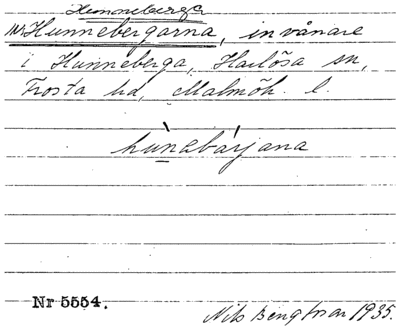 Hunneberga
Hunnebergarna, invånare
i Hunneberga, Harlösa sn,
Frosta hd, Malmöh. l.
hunabärjana
Nr 5554.
Nils Bengtsson 1935.